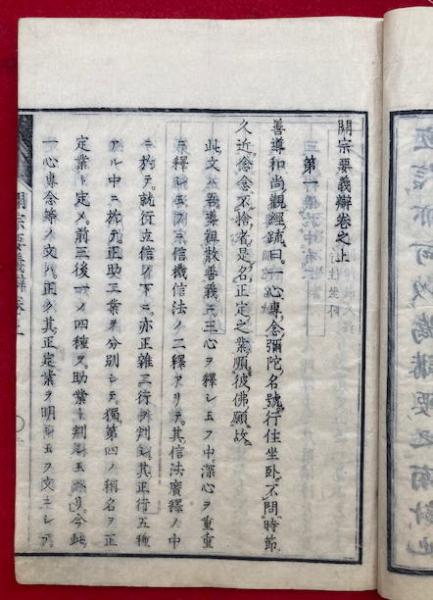 開宗要義辯卷之上
善導和尚觀經疏曰一心專念彌陀名號行住坐臥不問時節
久近念念不捨者是名正定之業順彼佛願故
此文ハ善導散善義ニ三心ヲ釋シ玉フ中深心ヲ重重
ニ釋シ玉フニ信機信法ノ二釋アリテ其信法廣釋ノ中
ニ於テ就行立信ノ下ニ亦正雜二行ヲ判シ其正行五種
アル中ニ於テ正助二業ヲ分別シテ獨第四ノ稱名ヲ正
定業ト定メ前三後一ノ四種ヲ助業ト判シ玉ヘリ今此
一心專念等ノ文ハ正ク其正定業ヲ明シ玉フ文ニシテ
開宗要義辯卷上